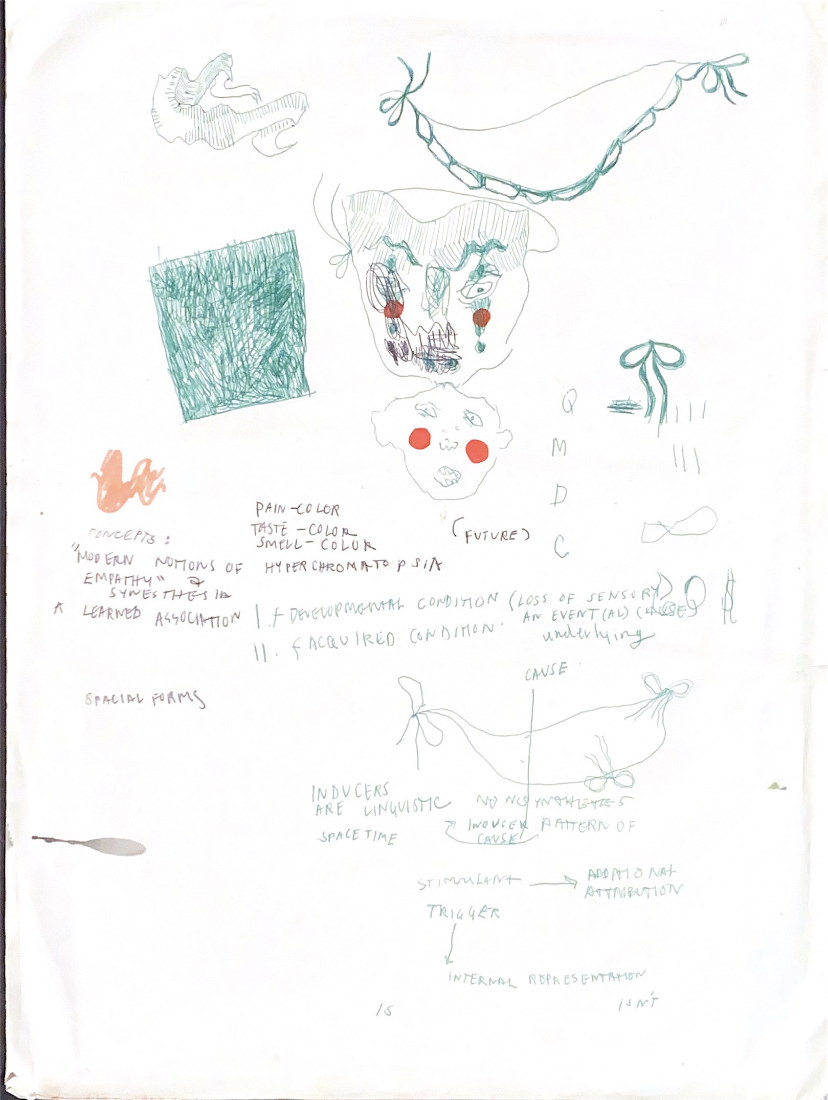 Q
M
D
C
PAIN-COLOR
TASTE-COLOR
SMELL-COLOR
(FUTURE)
CONCEPTS:
"MODERN NOTIONS OF HYPERCHROMATOPSIA
EMPATHY" &
SYNESTHESIA
A LEARNED ASSOCIATION
I. f DEVELOPMENTAL CONDITION (LOSS OF SENSORY)
AN EVENT(AL)
II. f ACQUIRED CONDITION underlying
SPACIAL FORMS
CAUSE
INDUCERS
ARE LINGUISTIC
SPACETIME
NONSYNTHETES
INDUCER PATTERN OF
CAUSE
STIMULANT → ADDITIONAL
ATTRIBUTION
TRIGGER
INTERNAL REPRESENTATION
IS
ISN'T